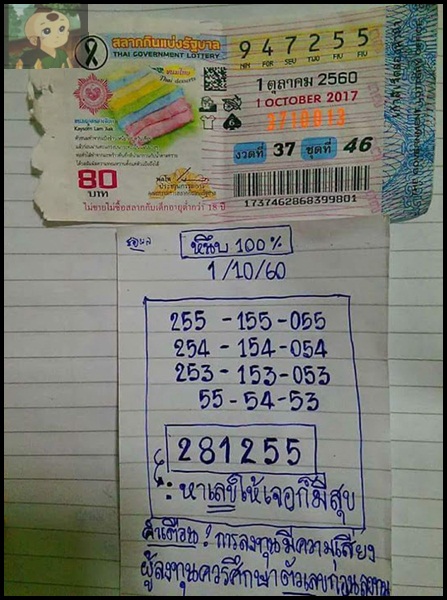 สลากกินแบ่งรัฐบาล
THAI GOVERNMENT LOTTERY
947255
NIN FOR SEV TWO FIV FIV
1 ตุลาคม 2560
1 OCTOBER 2017
ขนมไทย
Thai desserts
80
บาท
งวดที่ 37 ชุดที่ 46
1737462868399801
ไม่ขายไม่ซื้อสลากกับเด็กอายุต่ำกว่า 18 ปี
หนึบ 100%
1/10/60
255 - 155 - 055
254 - 154 - 054
253 - 153 - 053
55 - 54 - 53
281255
: หาเลขให้เจอก็มีสุข
คำเตือน! การลงทุนมีความเสี่ยง
ผู้ลงทุนควรศึกษาตัวเลขก่อนลงทุน